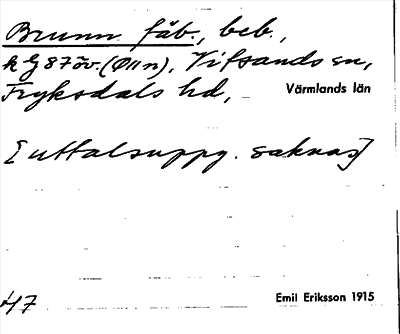 Brunn fäb., beb.,
k G 87 öv. (Ø 11 n), Vitsands sn,
Fryksdals hd, Värmlands län
[uttalsuppg. saknas]
47 Emil Eriksson 1915